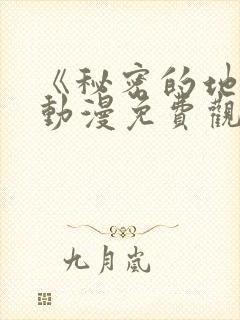 《秘密的地
動漫免費觀
九月嵐